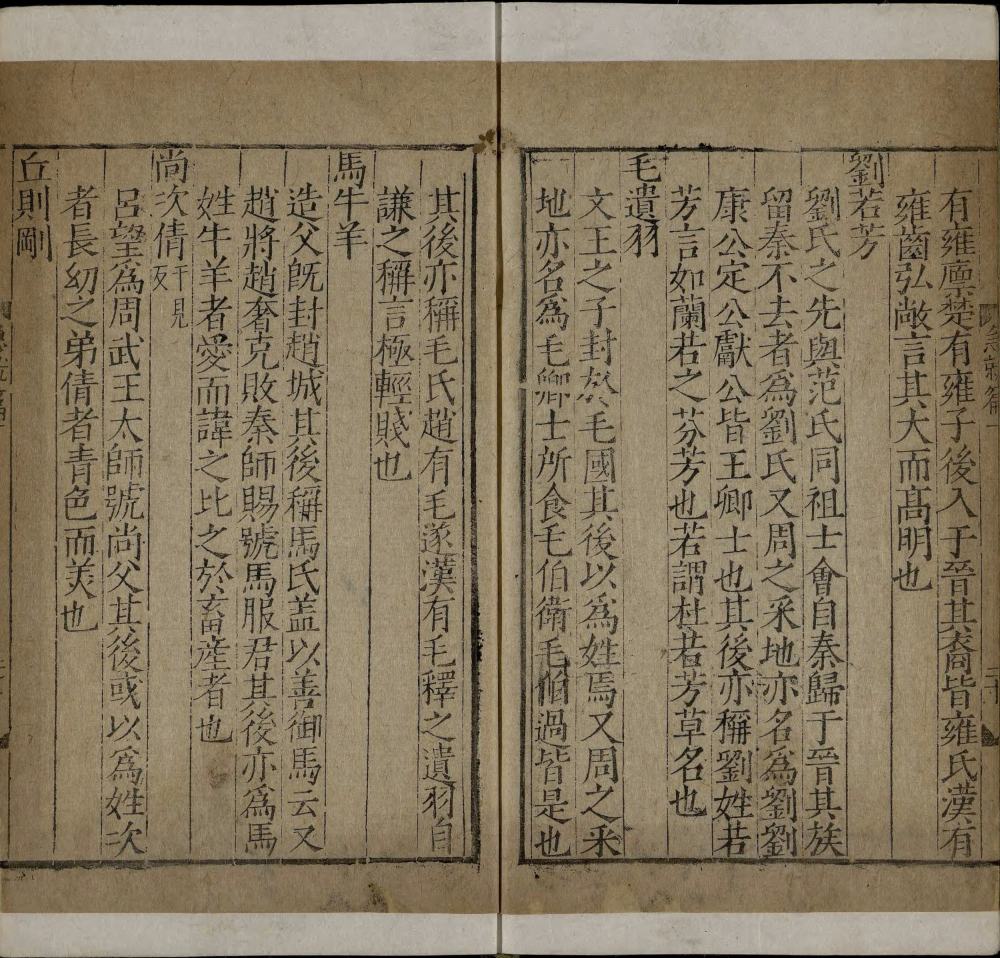 有雍廩楚有雍子後入于晉其裔皆雍氏漢有
雍齒弘敞言其大而高明也
劉若芳
劉氏之先與范氏同祖士會自秦歸于晉其族
留秦不去者為劉氏又周之采地亦名為劉劉
康公定公獻公皆王卿士也其後亦稱劉姓若
芳言如蘭若之芬芳也若謂杜若芳草名也
毛遺羽
文王之子封於毛國其後以為姓焉又周之采
地亦名為毛卿士所食毛伯衛毛伯過皆是也
其後亦稱毛氏趙有毛遂漢有毛釋之遺羽自
謙之稱言極輕賤也
馬牛羊
造父既封趙城其後稱馬氏盖以善御馬云又
趙將趙奢克敗秦師賜號馬服君其後亦為馬
姓牛羊者愛而諱之比之於畜產者也
尚次倩千見反
呂望為周武王太師號尚父其後或以為姓次
者長幼之弟倩者青色而美也
丘則剛